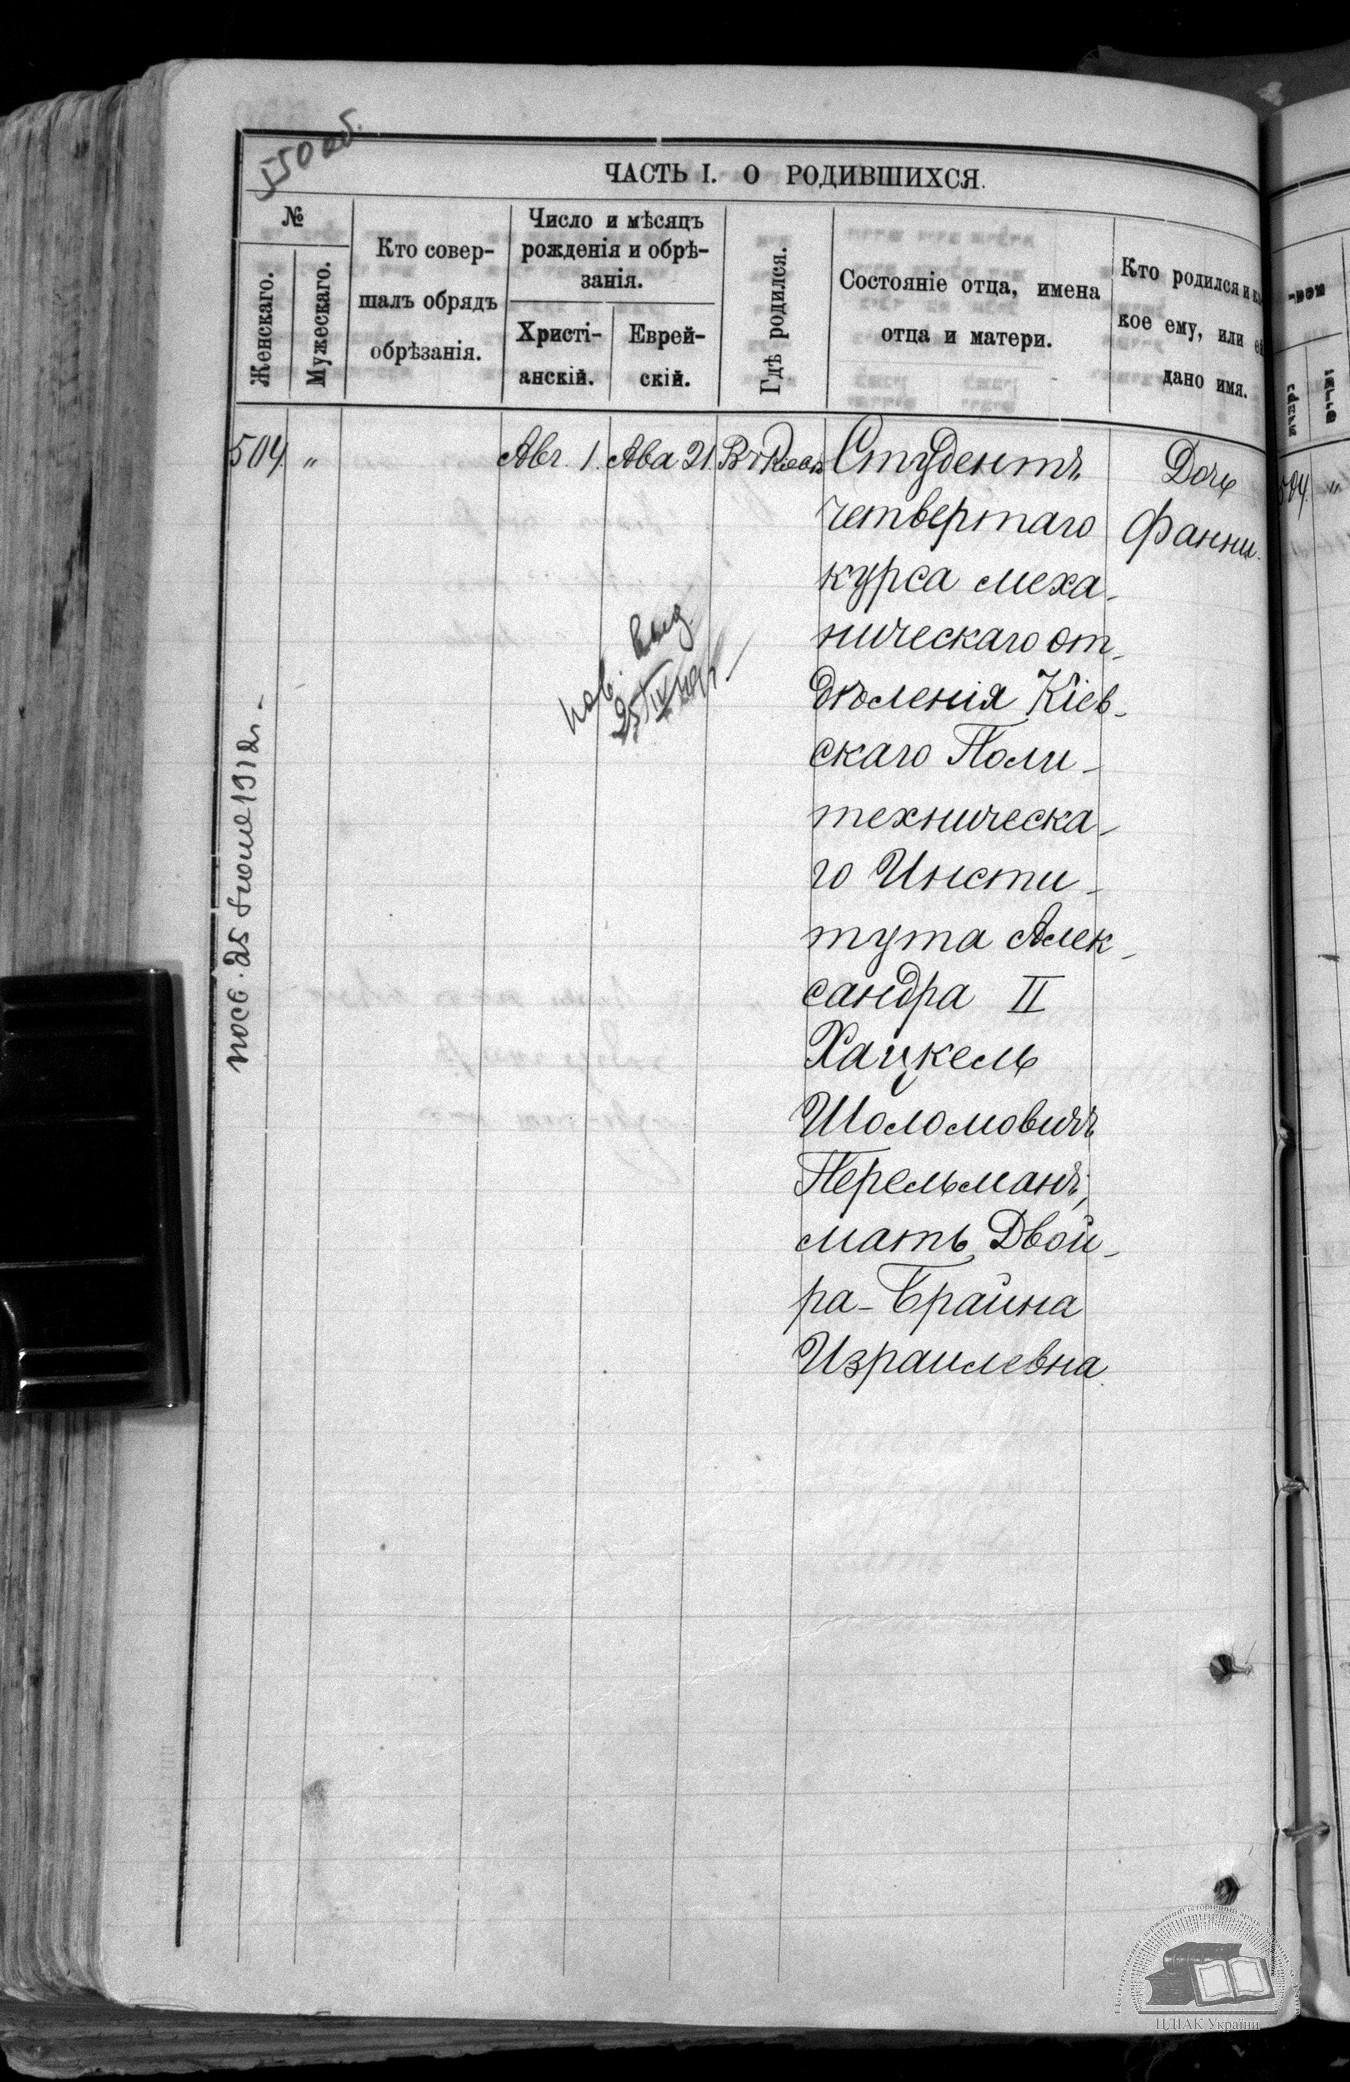 550 об.
ЧАСТЬ I. О РОДИВШИХСЯ.
№
Женскаго.
Мужескаго.
Кто совер-
шалъ обрядъ
обрѣзанія.
Число и мѣсяцъ
рожденія и обрѣ-
занія.
Христі-
анскій.
Еврей-
скій.
Гдѣ родился.
Состояніе отца, имена
отца и матери.
Кто родился и ка
кое ему, или ей
дано имя.
504. „ Авг. 1. Ава 21. Въ Кіевѣ
Студентъ
четвертаго
курса меха-
ническаго от-
дѣленія Кіев-
скаго Поли-
техническа-
го Инсти-
тута Алек-
сандра II
Хацкель
Шоломовичъ
Перельманъ,
мать Двой-
ра-Брайна
Израилевна.
Дочь
Фанни.
504. „
25
1912 г.
ЦДІАК України